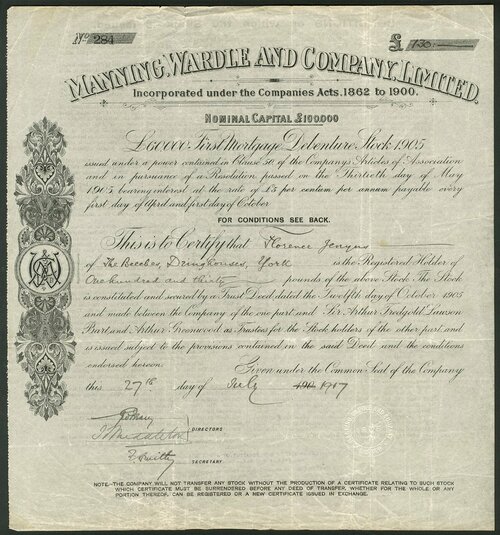 No. 284
£ 130:-
MANNING, WARDLE AND COMPANY, LIMITED.
Incorporated under the Companies Acts. 1862 to 1900.
NOMINAL CAPITAL £100.000
£60000 First Mortgage Debenture Stock 1905
issued under a power contained in Clause 50 of the Company's Articles of Association
and in pursuance of a Resolution passed on the Thirtieth day of May
1905 bearing interest at the rate of £5 per centum per annum payable every
first day of April and first day of October
FOR CONDITIONS SEE BACK.
This is to Certify that Florence
of The Beeches, Dringhouses, York is the Registered Holder of
One hundred and thirty pounds of the above Stock. The Stock
is constituted and secured by a Trust Deed dated the Twelfth day of October 1905
and made between the Company of the one part and Sir Arthur Tredgold Lawson
Bart and Arthur Greenwood as Trustees for the Stock holders of the other part and
is issued subject to the provisions contained in the said Deed and the conditions
endorsed hereon. Given under the Common Seal of the Company
this 27th day of July 1917
DIRECTORS
SECRETARY
NOTE.-THE COMPANY WILL NOT TRANSFER ANY STOCK WITHOUT THE PRODUCTION OF A CERTIFICATE RELATING TO SUCH STOCK
WHICH CERTIFICATE MUST BE SURRENDERED BEFORE ANY DEED OF TRANSFER, WHETHER FOR THE WHOLE OR ANY
PORTION THEREOF, CAN BE REGISTERED OR A NEW CERTIFICATE ISSUED IN EXCHANGE.